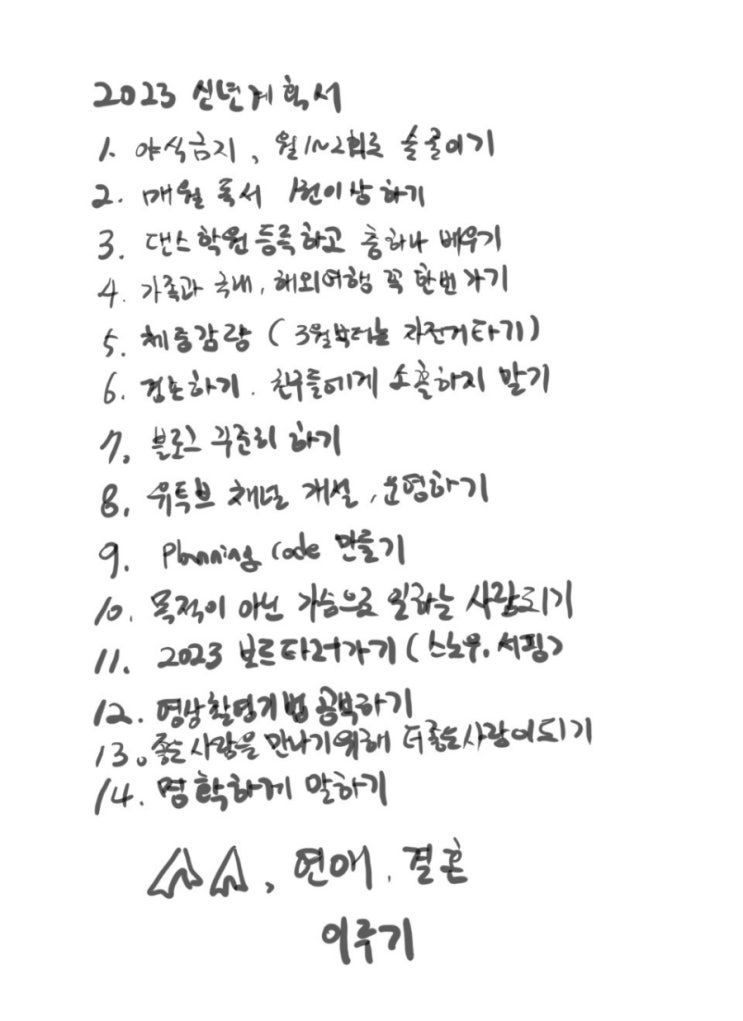 2023 신년계획서
1. 야식금지, 월 1~2회로 술줄이기
2. 매월 독서 1권이상 하기
3. 댄스학원등록하고 춤하나 배우기
4. 가족과 국내, 해외여행 꼭 한번 가기
5. 체중감량 (3월부터는 자전거타기)
6. 겸손하기. 친구들에게 소홀하지 말기
7. 블로그 꾸준히 하기
8. 유튜브 채널 개설, 운영하기
9. Planning code 만들기
10. 목적이 아닌 가슴으로 일하는 사람되기
11. 2023 보드타러가기 (스노우, 서핑)
12. 영상촬영기법 공부하기
13. 좋은 사람을 만나기위해 더 좋은 사람이되기
14. 명확하게 말하기
, 연애, 결혼
이루기